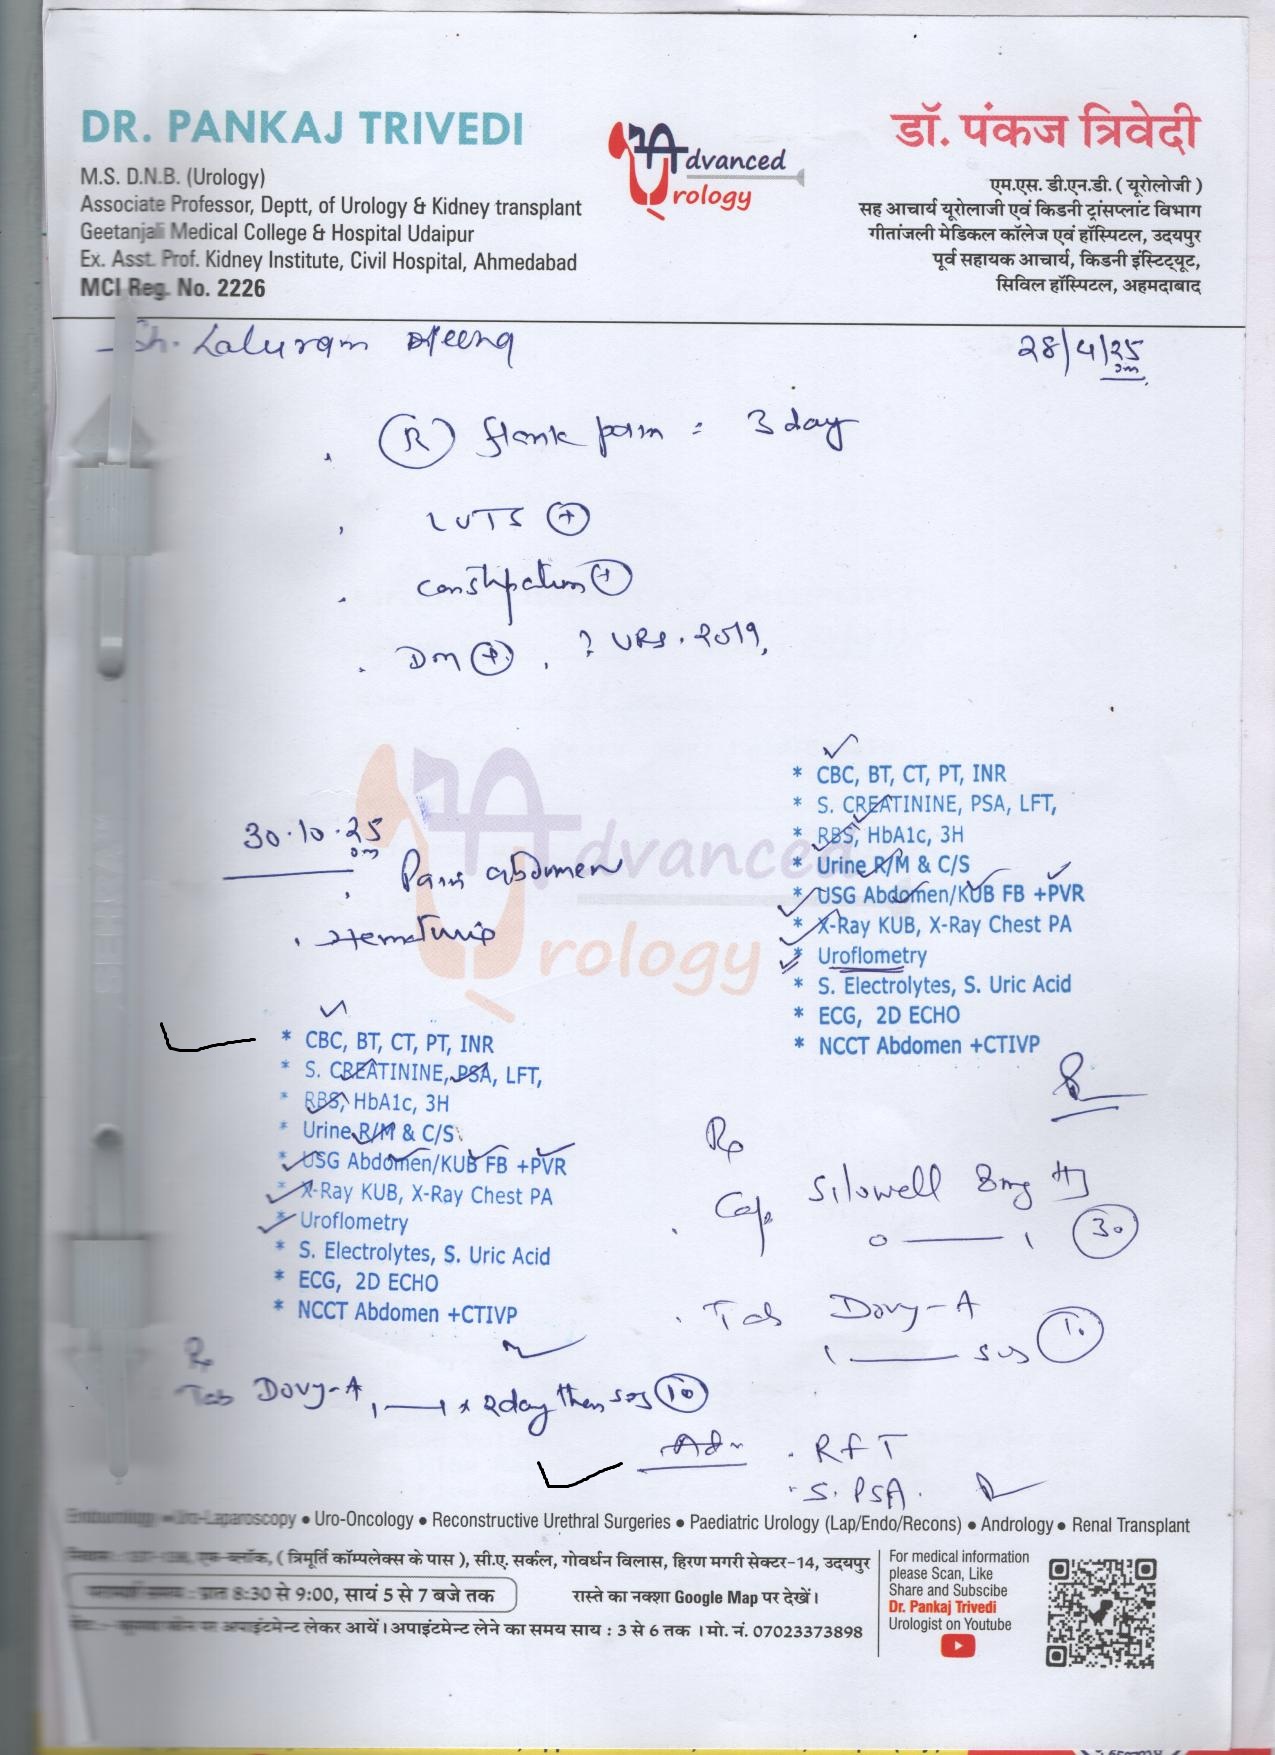 DR. PANKAJ TRIVEDI
M.S. D.N.B. (Urology)
Associate Professor, Deptt, of Urology & Kidney transplant
Geetanjali Medical College & Hospital Udaipur
Ex. Asst. Prof. Kidney Institute, Civil Hospital, Ahmedabad
MCI Reg. No. 2226
Advanced
Urology
डॉ. पंकज त्रिवेदी
एम.एस. डी.एन.डी. ( यूरोलोजी )
सह आचार्य यूरोलाजी एवं किडनी ट्रांसप्लांट विभाग
गीतांजली मेडिकल कॉलेज एवं हॉस्पिटल, उदयपुर
पूर्व सहायक आचार्य, किडनी इंस्टिट्यूट,
सिविल हॉस्पिटल, अहमदाबाद
Sh. Laluram Meena
28/4/25
R flank pain = 3 day
LUTS +
Constipation +
DM + , ? URS . 2019,
* CBC, BT, CT, PT, INR
* S. CREATININE, PSA, LFT,
* RBS, HbA1c, 3H
* Urine R/M & C/S
* USG Abdomen/KUB FB +PVR
* X-Ray KUB, X-Ray Chest PA
* Uroflometry
* S. Electrolytes, S. Uric Acid
* ECG, 2D ECHO
* NCCT Abdomen +CTIVP
Advanced
Urology
30.10.25
Pain abdomen
Hematuria
* CBC, BT, CT, PT, INR
* S. CREATININE, PSA, LFT,
* RBS, HbA1c, 3H
* Urine R/M & C/S
* USG Abdomen/KUB FB +PVR
* X-Ray KUB, X-Ray Chest PA
* Uroflometry
* S. Electrolytes, S. Uric Acid
* ECG, 2D ECHO
* NCCT Abdomen +CTIVP
Rp
Cap Silowell 8mg
0 — 1 30
Tab Dovy-A
1 — sos 10
Rp
Tab Dovy-A 1—1 x 2day then sos 10
Adv . RFT
. S. PSA.
Laparoscopy • Uro-Oncology • Reconstructive Urethral Surgeries • Paediatric Urology (Lap/Endo/Recons) • Andrology • Renal Transplant
( त्रिमूर्ति कॉम्पलेक्स के पास ), सी.ए. सर्कल, गोवर्धन विलास, हिरण मगरी सेक्टर-14, उदयपुर
प्रात 8:30 से 9:00, सायं 5 से 7 बजे तक
रास्ते का नक्शा Google Map पर देखें।
अपाइंटमेन्ट लेकर आयें। अपाइंटमेन्ट लेने का समय साय : 3 से 6 तक । मो. नं. 07023373898
For medical information
please Scan, Like
Share and Subscibe
Dr. Pankaj Trivedi
Urologist on Youtube